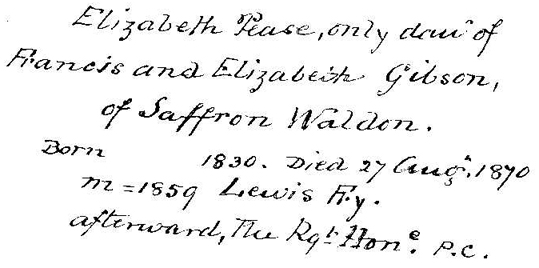 Elizabeth Pease, only dauʳ of
Francis and Elizabeth Gibson,
of Saffron Waldon.
Born 1830. Died 27 Augˢᵗ. 1870
m = 1859 Lewis Fry.
afterward, The Rgᵗ. Honᵉ. P.C.